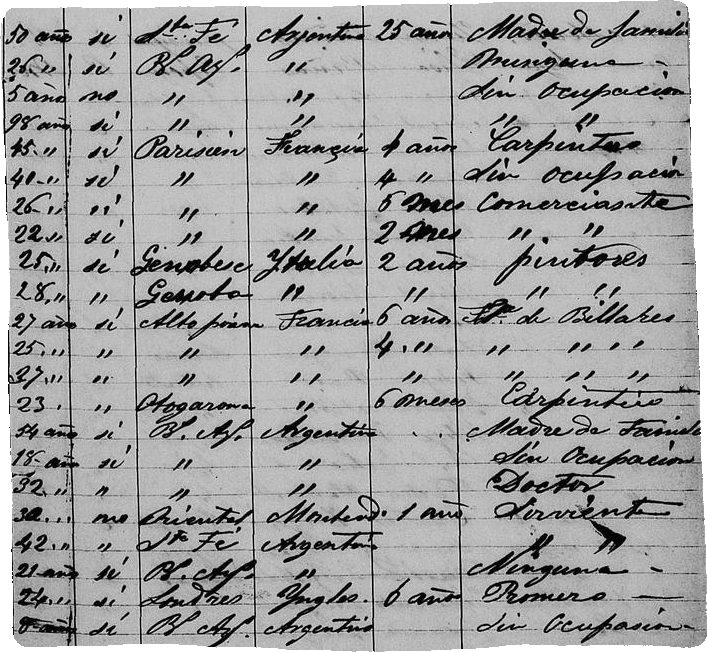 50 año sí Sta. Fé Argentina 25 años Madre de famili
26 〃 sí Bs. Ays. 〃 Ninguna -
5 año no 〃 〃 Sin Ocupacion
98 año sí 〃 〃 〃 〃
45 〃 sí Parisien Francia 4 años Carpintero
40 〃 sí 〃 〃 4 〃 Sin ocupación
26 〃 〃 〃 6 mes Comerciante
22 〃 sí 〃 〃 2 mes 〃 〃
25 〃 sí Genobese Ytalia 2 años pintores
28 〃 〃 Genoba 〃 〃 〃 〃
27 año sí Alto Francia 6 años de Billares
25 〃 〃 〃 〃 4 〃 〃 〃 〃
27 〃 〃 〃 〃 〃 〃 〃 〃
23 〃 〃 6 meses Carpintero
54 año sí Bs. Ays. Argentina . . Madre de Famili
18 año sí 〃 〃 Sin Ocupación
32 〃 〃 〃 〃 Doctor
30 〃 no Oriental Montevd. 1 año Sirviente
42 〃 〃 Sta Fé Argentin 〃 〃
21 año sí Bs. Ays. 〃 Ninguna -
24 〃 sí Londres Yngles. 6 años Romero -
año sí Bs. Ays. Argentin Sin Ocupasion -